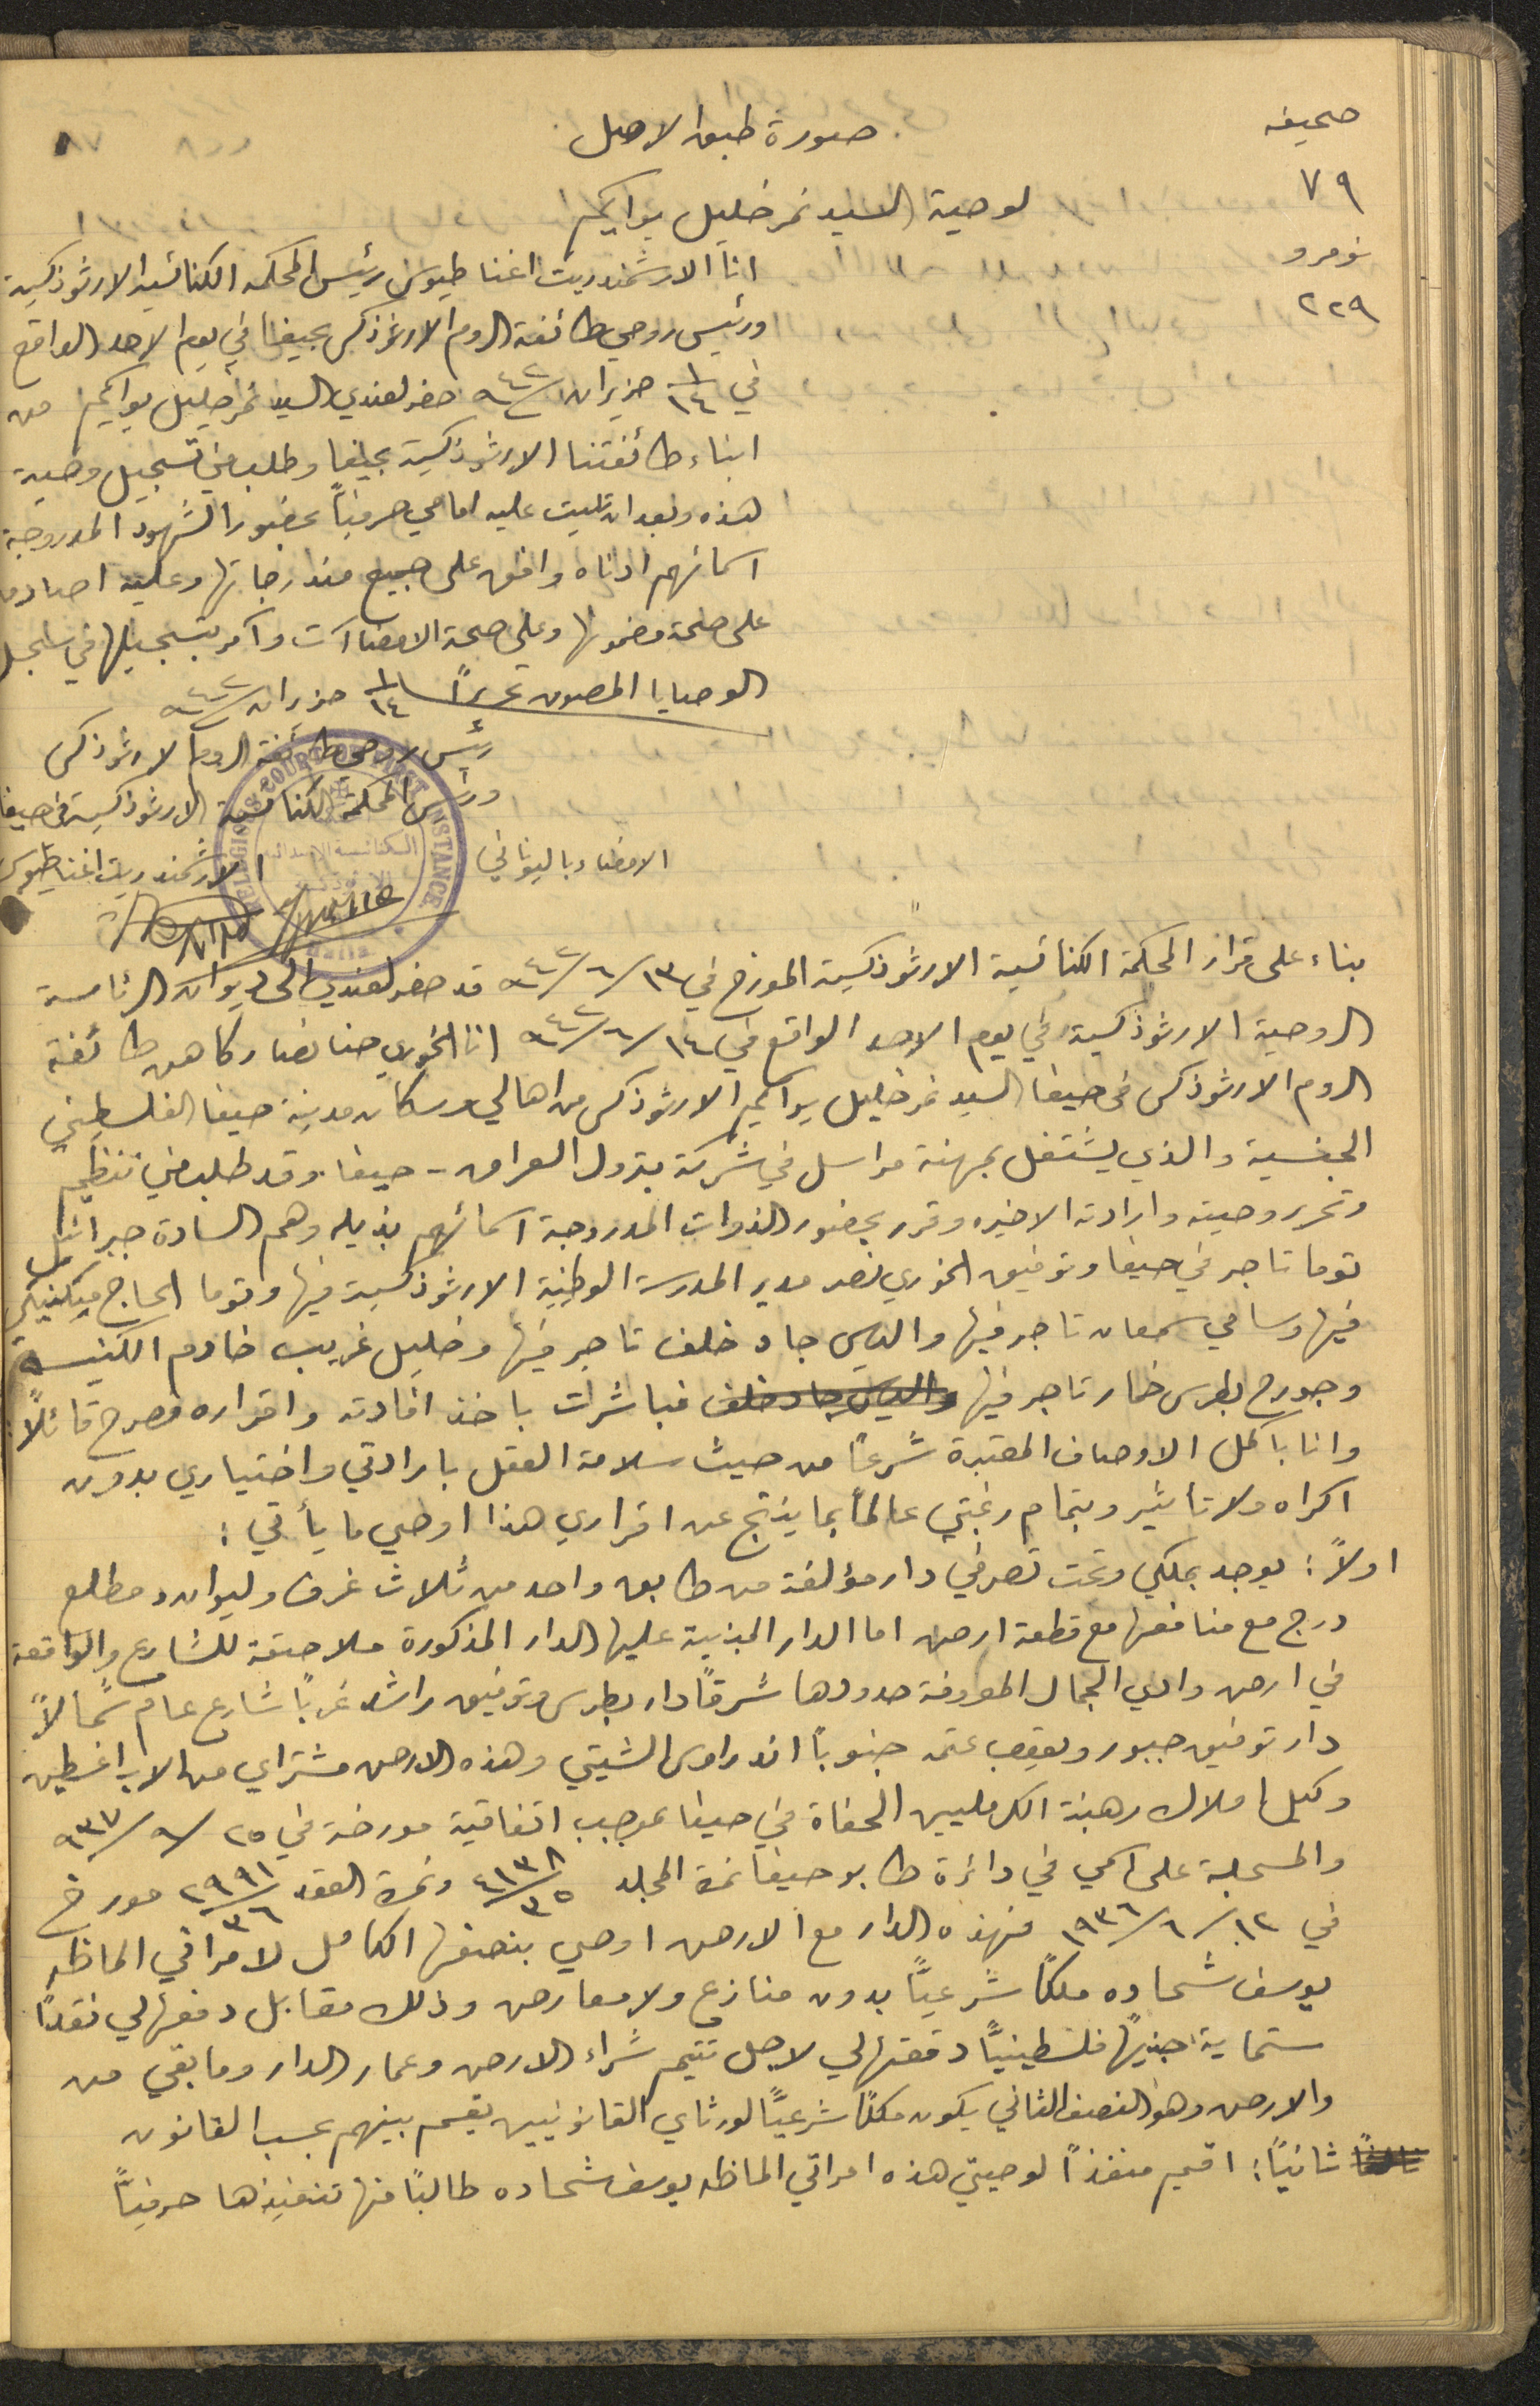 صحيفه
٧٩
نومرو
٢٢٩
صورة طبق الاصل
لوصية السيد نمر خليل يواكيم
انا الارشمندريت اغناطيوس رئيس المحكمه الكنائسيه الارثوذكسية
ورئيس روحي طائفة الروم الارثوذكس بحيفا في يوم الاحد الواقع
في ١/١٤ حزيران ٩٤٢ حضر لعندي السيد نمر خليل يواكيم من
ابناء طائفتنا الارثوذكسية بحيفا وطلب مني تسجيل وصية
هذه وبعد ان تليت عليه امامي حرفياً بحضور الشهود المدروجة
اسمائهم ادناه وافق على جميع مندرجاتها وعليه اصادق
على صحة مضمونها وعلى صحة الامضاآت وآمر بتسجيلها في سجل
الوصايا المصون تحريراً ١/١٤ حزيران ٩٤٢
رئيس روحي طائفة الروم الارثوذكس
ورئيس المحكمة الكنائسية الارثوذكسية في حيفا
الامضاء باليوناني الارشمندريت اغناطيوس
RELIGIOUS COURT OF FIRST INSTANCE
الكنائسية الابتدائية
Haifa
بناء على قرار المحكمة الكنائسية الارثوذكسية المؤرخ في ١٣/٦/٩٤٢ قد حضر لعندي الى ديوان الرئاسة
الروحية الارثوذكسية في يوم الاحد الواقع في ١٤/٦/٩٤٢ انا الخوري حنا نصار كاهن طائفة
الروم الارثوذكس في حيفا السيد نمر خليل يواكيم الارثوذكس من اهالي وسكان مدينة حيفا الفلسطيني
الجنسية والذي يشتغل بمهنة مراسل في شركة بترول العراق - حيفا وقد طلب مني تنظيم
وتحرير وصيته وارادته الاخيره وقرر بحضور الذوات المدروجة اسمائهم بذيله وهم السادة جبرائيل
توما تاجر في حيفا وتوفيق الخوري نصر مدير المدرسة الوطنية الارثوذكسية فيها وتوما الحاج ميكنيكي
فيها وسامي سمعان تاجر فيها والياس جاد خلف تاجر فيها وخليل غريب خادم الكنيسة
وجورج بطرس خمار تاجر فيها والياس جاد خلف فباشرت باخذ افادته واقراره فصرح قائلاً:
وانا باكمل الاوصاف المعتبرة شرعاً من حيث سلامة العقل بارادتي واختياري بدون
اكراه ولا تأثير وبتمام رغبتي عالماً بما ينتج عن اقراري هذا اوصي ما يأتي:
اولاً: يوجد بملكي وتحت تصرفي دار مؤلفة من طابق واحد من ثلاث غرف وليوان ومطلع
درج مع منافعها مع قطعة ارض اما الدار المبنية عليها الدار المذكورة ملاصقة للشارع والواقعة
في ارض وادي الجمال المعروفة حدودها شرقاً دار بطرس وتوفيق راشد غرباً شارع عام شمالاً
دار توفيق جبور ويعقوب عتمه جنوباً اندراوس الشيتي وهذه الارض مشتراي من الاب اغسطين
وكيل املاك رهبنة الكرمليين الحفاة في حيفا بموجب اتفاقية مورخة في ٢٥/٩/٩٣٧
والمسجلة على اسمي في دائرة طابو حيفا نمرة المجلد ٤١٣٨/٣٥ ونمرة العقد ٢٩٩١/٣٦ مورخ
في ١٢/٦/١٩٣٦ فهذه الدار مع الارض اوصي بنصفها الكامل لامراتي الماظه
يوسف شحاده ملكاً شرعياً بدون منازع ولا معارض وذلك مقابل دفعها لي نقداً
ستماية جنيهاً فلسطينياً دفعتها لي لاجل تتيم شراء الارض وعمار الدار وما بقي من
والارض وهو النصف الثاني يكون ملكاً شرعياً لورثاي القانونيين يقسم بينهم بحسب القانون
ثانياً: اقيم منفذاً لوصيتي هذه امراتي الماظه يوسف شحاده طالباً منها تنفيذها حرفياً